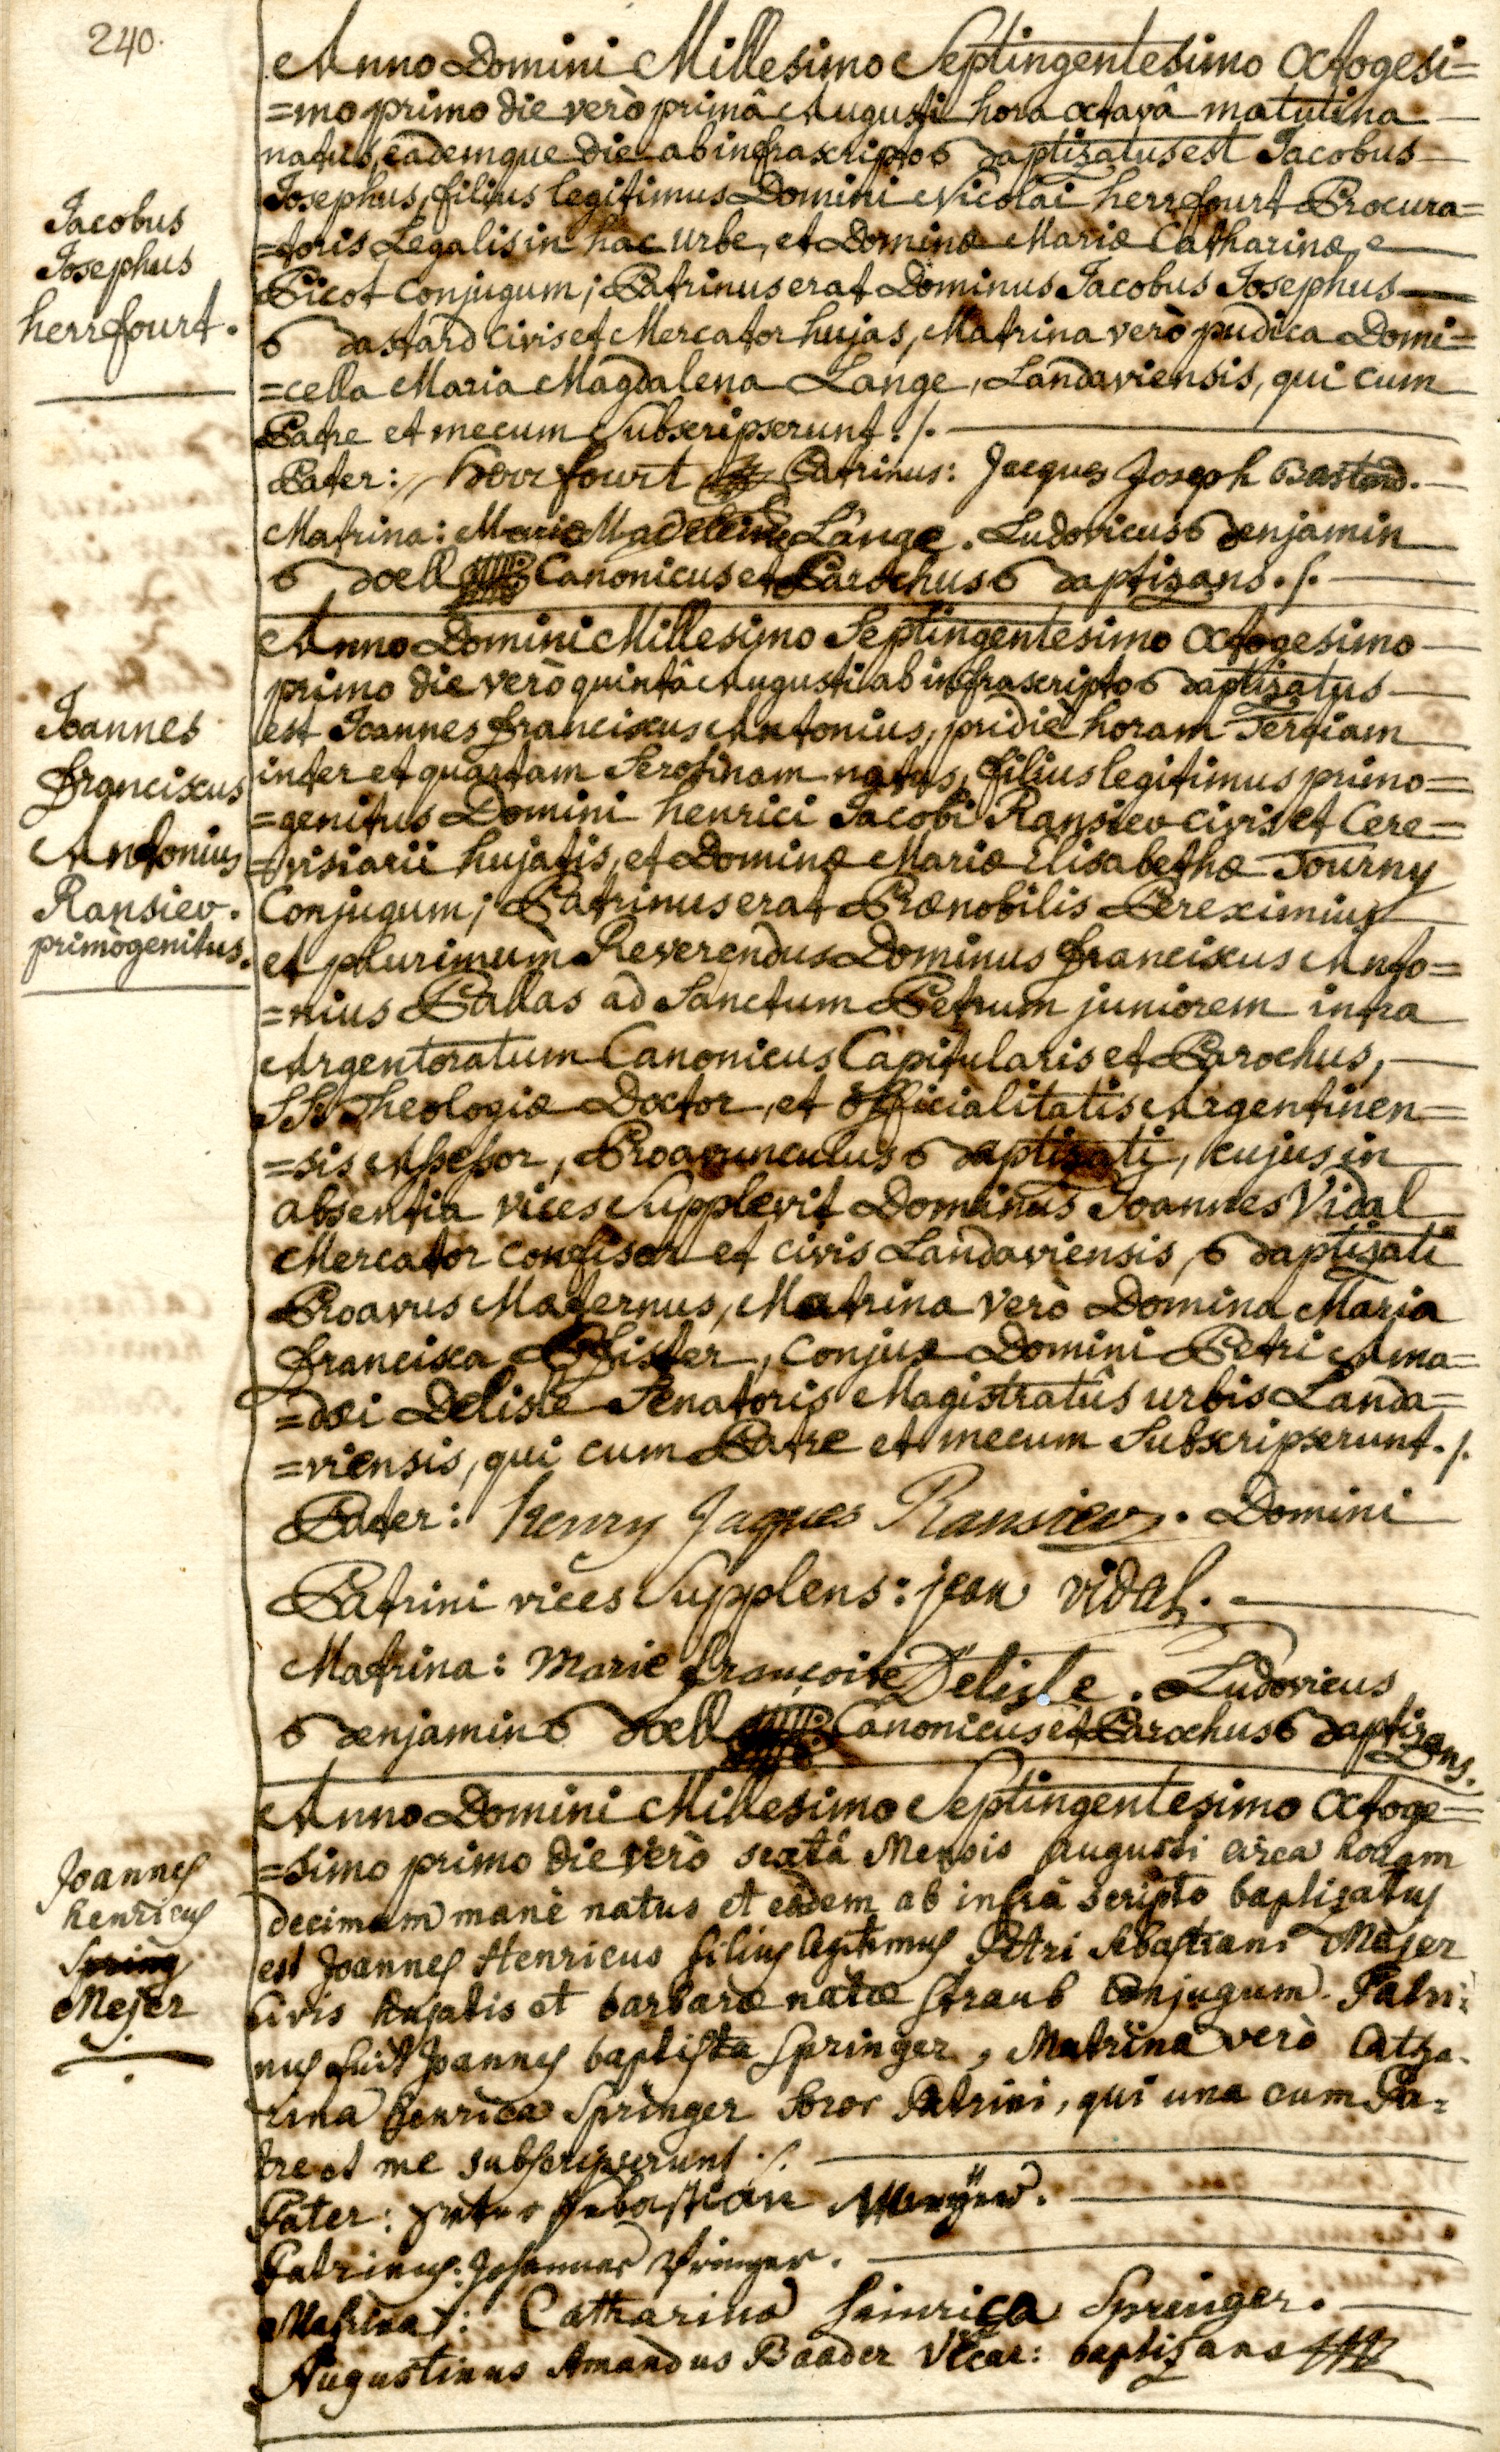 240.
Anno Domini Millesimo Septingentesimo Octogesi=
=mo primo die verò primâ Augusti hora octavâ matutina
natus, eademque die ab infrascripto Baptizatus est Jacobus
Josephus, filius legitimus Domini Nicolai herrfourt Procura=
=toris Legalis in hac urbe, et Dominæ Mariæ Catharinæ
Picot conjugum; Patrinus erat Dominus Jacobus Josephus
Bastard civis et Mercator hujas, Matrina verò pudica Domi=
=cella Maria Magdalena Lange, Landaviensis, qui cum
Patre et mecum Subscripserunt ./.
Pater: herrfourt Patrinus: Jacques Joseph Bastard.
Matrina: Marie Madeleine Lange. Ludovicus Benjamin
Boell Canonicus et Parochus Baptizans ./.
Jacobus
Josephus
herrfourt.
Anno Domini Millesimo Septingentesimo Octogesimo
primo die verò quintâ Augusti ab infrascripto Baptizatus
est Joannes franciscus Antonius, pridiè horam Tertiam
inter et quartam Serotinam natus, filius legitimus primo=
=genitus Domini henrici Jacobi Ransiev civis et Cere=
=visiarii hujatis, et Dominæ Mariæ Elisabethæ Tourny
Conjugum; Patrinus erat Prænobilis Pereximius
et plurimùm Reverendus Dominus franciscus Anto=
=nius Pallas ad Sanctum Petrum juniorem intra
Argentoratum Canonicus Capitularis et Parochus,
SS. Theologiæ Doctor, et officialitatis Argentinen=
=sis Assessor, Proavunculus Baptizati, cujus in
absentia vices Supplevit Dominus Joannes Vidal
Mercator confisor et civis Landaviensis, Baptizati
Proavus Maternus, Matrina verò Domina Maria
francisca Pfister, conjux Domini Petri Ama=
=dæi Delisle Senatoris Magistratûs urbis Landa=
=viensis, qui cum Patre et mecum Subscripserunt ./.
Pater: henry Jaques Ransiev. Domini
Patrini vices Supplens: jean vidal.
Matrina: Marie françoise Delisle. Ludovicus
Benjamin Boell Canonicus et Parochus Baptizans.
Joannes
franciscus
Antonius
Ransiev.
primògenitus.
Anno Domini Millesimo Septingentesimo Octoge=
=simo primo die verò sextâ Mensis augusti circa horam
decimam manè natus et eâdem ab infrà scripto baptizatus
est Joannes Henricus filius legitimus Petri Sebastiani Mejer
Civis hujatis et barbaræ natæ Straub conjugum. Patri=
nus fuit Joannes baptista Springer, Matrina verò Catha=
rina henrica Springer Soror Patrini, qui una cum Pa=
tre et me subscripserunt ./.
Pater: Peter Sebastian Meÿer.
Patrinus: Johannes Springer.
Matrina: Catharina Heinrica Springer.
Augustinus Amandus Baader Vicar: baptizans
Joannes
henricus
Spring
Mejer